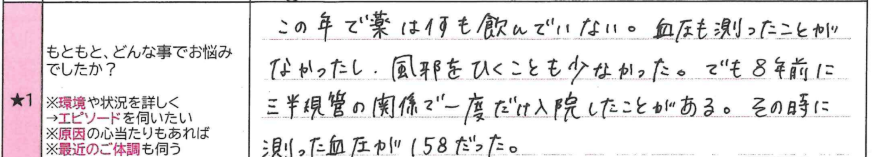 ★1
もともと、どんな事でお悩み
でしたか？
※環境や状況を詳しく
→エピソードを伺いたい
※原因の心当たりもあれば
※最近のご体調も伺う
この年で薬は何も飲んでいない。血圧も測ったことが
なかったし、風邪をひくことも少なかった。でも8年前に
三半規管の関係で一度だけ入院したことがある。その時に
測った血圧が158だった。